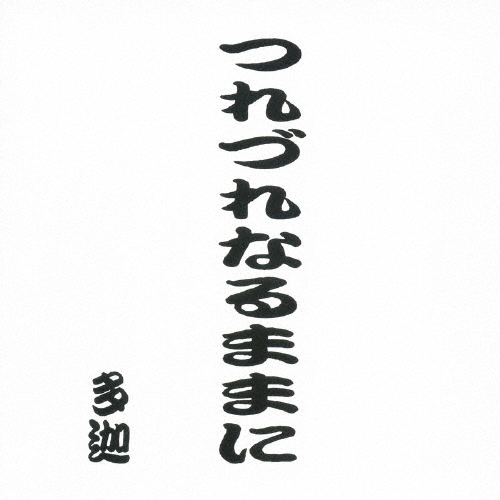 つれづれなるままに
多迦